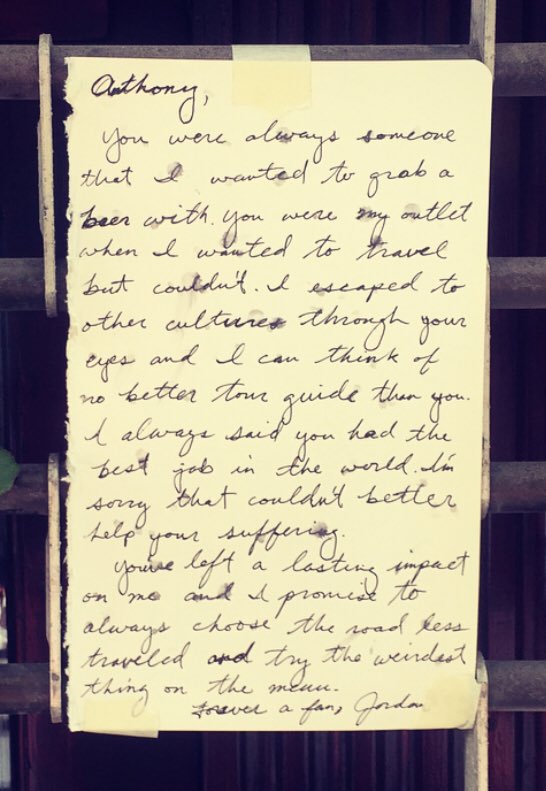 Anthony,
You were always someone
that I wanted to grab a
beer with. You were my outlet
when I wanted to travel
but couldn't. I escaped to
other cultures through your
eyes and I can think of
no better tour guide than you.
I always said you had the
best job in the world. I'm
sorry that couldn't better
help your suffering.
You've left a lasting impact
on me and I promise to
always choose the road less
traveled and try the weirdest
thing on the menu.
Forever a fan, Jordan